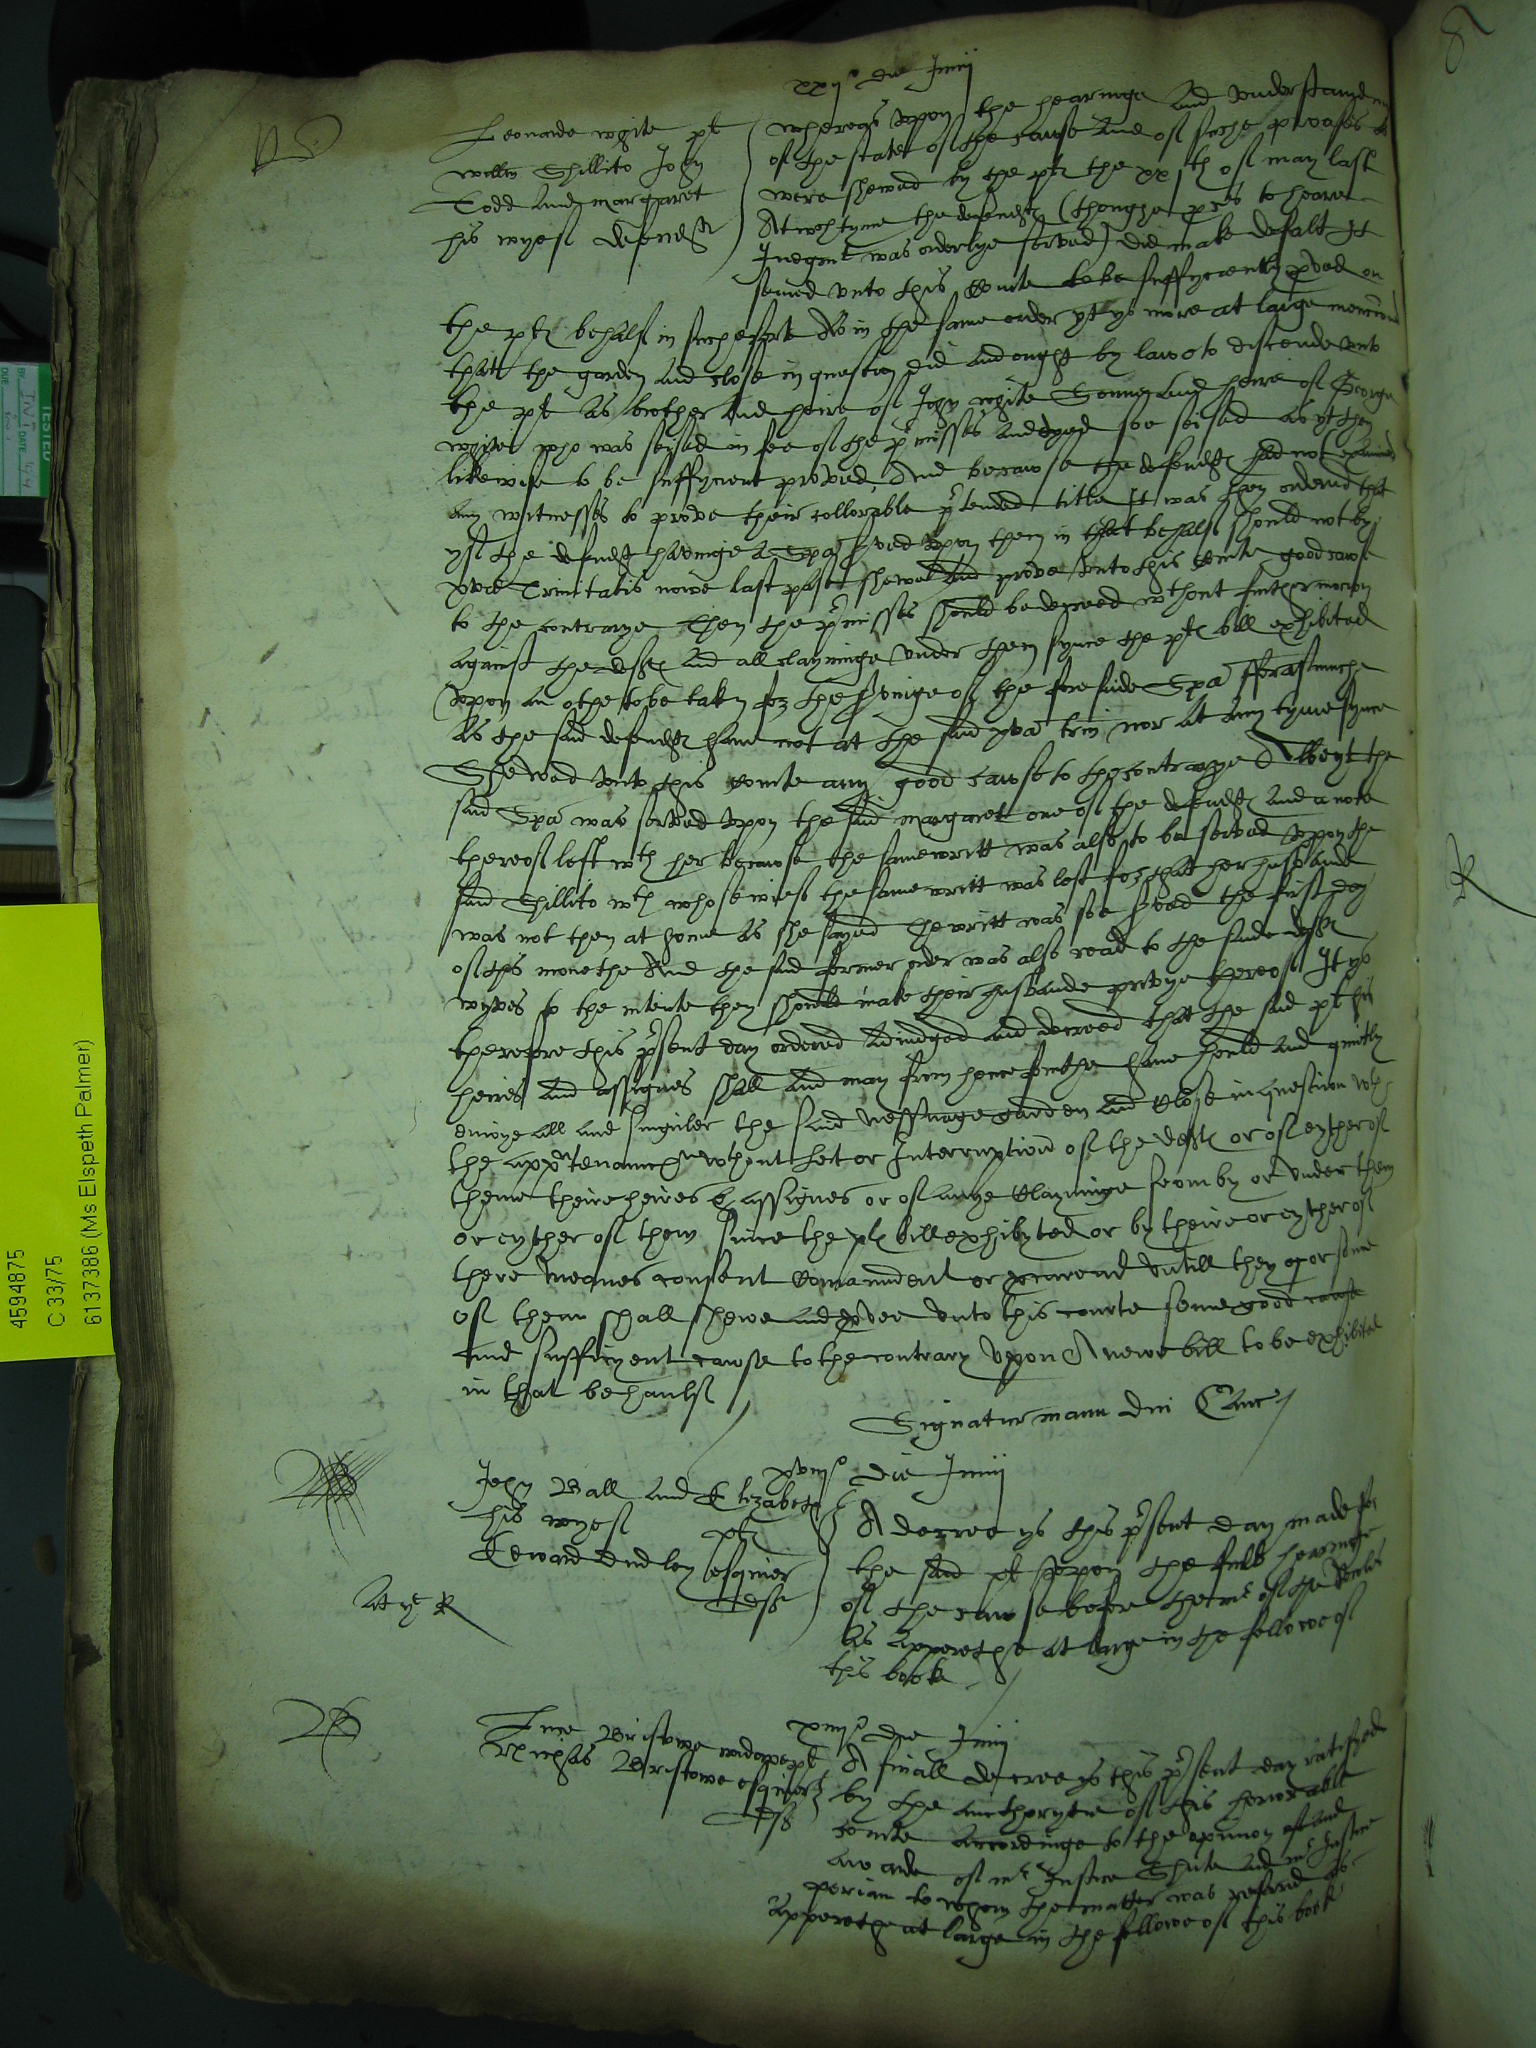 xxijo die Junij
Leonarde white pt
Willm Shillito John
Todd and margaret
his wyef defendts
whereas upon the hearinge and understand
of the state of the cause and of suche prooafes as
were shewed by the pt the xxth of may last
At wch tyme the defendts (thoughe proces to heare
Iudgmt was orderlye served) did make defalt It
semed unto this Courte to be suffycyently proved on
the pts behalf in suche sorte As in the same order yt ys more at large mencioned
that the garden and close in question did and ought by lawe to discende unto
the pt as brother and heire of John white Sonne and heire of George
white who was seised in fee of the pmisses and dyed soe seised as yt then
likewise to be suffycient proved, And because the defendts had not examined
any witnesses to prove their collorable ptended title It was then ordered that
yf the defendts havinge a Spa served upon them in that behalf should not by
xva Trinitatis nowe last past shewe and prove unto this Courte good cause
to the contrarye Then the pmisses should be decreed wthout further mocion
against the defts and all clayminge under them synce the pts bill exhibited
(upon an othe to be taken for the servinge of the foresaide Spa fforasmuche
As the said defendts have not at the said xva trin nor at any tyme synce
Shewed unto this courte any good cause to the contrarye Albeyt the
said Spa was served upon the said margaret one of the defendts and a note
thereof left wth her because the same writt was also to be served upon the
said Shillito wth whose wief the same writt was left for that her husbande
was not then at home as she sayed The writt was soe served the first day
of this monethe And the said former order was also read to the saide defts
wyves to the intente they should make their husbande privye thereof It ys
therefore this psent day ordered adiudged and decreed that the said pt his
heires and assignes shall and may from hence forthe have hould and quietly
enioye all and singuler the said messuage garden and Close in question wth
the apptenaunces wthout Let or Interruption of the defts or of eyther of
theme theire heires & assignes or of anye Clayminge from by or under them
or eyther of them since the pts bill exhibyted or by theire or eyther of
there meanes consent Comaundemt or procuremt untill they or some
of them shall shewe and prove unto this courte some good cause
and suffycyent cause to the contrary upon A newe bill to be exhibited
in that behaulf
Signatur manu Dni Canc
xviijo die Junij
John Ball and Elizabeth
his wyef pts
Edward Dudley esquier
deft
A decree ys this psent day made for
the said pt upon the full hearinge
of the cause before the mr of the Rowles
As apperethe at large in the followe of
this book
xiiijo die Junij
Bristowe widowe pt
Nicholas Bristowe esquier
deft
A finall decree ys this psent day ratifyed
by the aucthorytie of this honorable
courte accordinge to the opinion and
awarde of mr Justice Shute and mr Justice
periam to whom the matter was referred as
apperethe at large in the followe of this book
4594875
C 33/75
6137386 (Ms Elspeth Palmer)
TESTED
BY INT DATE 4/4
DUE